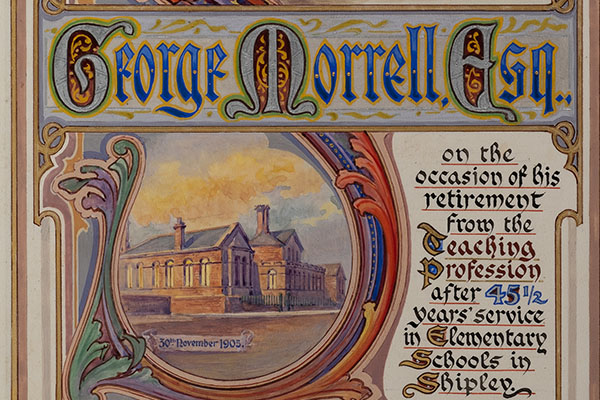 George Morrell, Esq.,
on the
occasion of his
retirement
from the
Teaching
Profession
after 45 1/2
years' service
in Elementary
Schools in
Shipley.
30th November 1905.